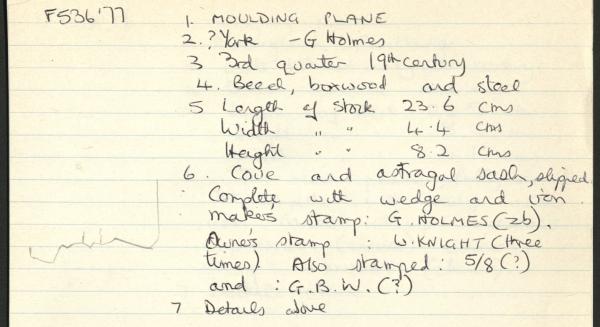 F536'77
1. MOULDING PLANE
2. ? York - G Holmes
3 3rd quarter 19th century
4. Beech, boxwood and steel
5 Length of stock 23.6 cms
Width " " 4.4 cms
Height " " 8.2 cms
6. Cove and astragal sash, slipped.
Complete with wedge and iron.
makers stamp: G. HOLMES (2b).
Owner's stamp : W. KNIGHT (three
times). Also stamped: 5/8 (?)
and : G.B.W. (?)
7 Details above